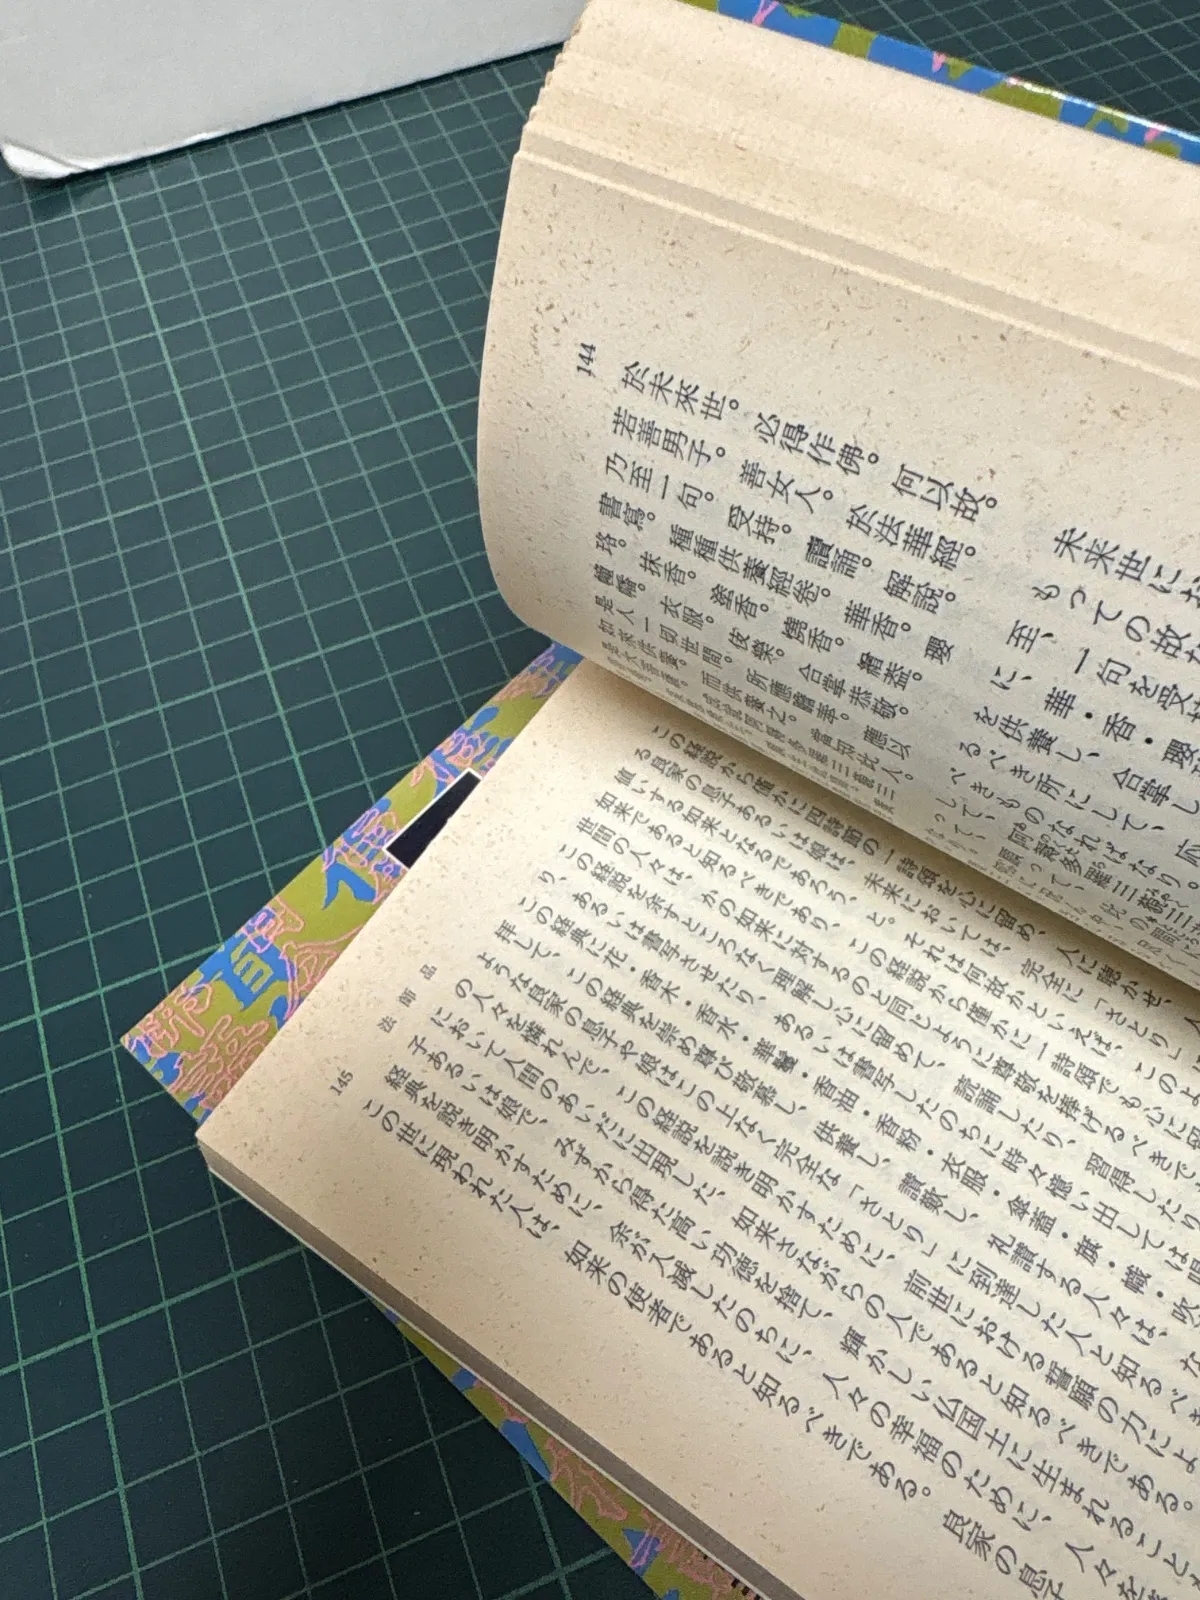 於未來世。必得作佛。何以故。
若善男子。善女人。於法華經。
乃至一句。受持。讀誦。解說。
書寫。種種供養經卷。華香。瓔
珞。抹香。塗香。燒香。繒蓋。
幢幡。衣服。伎樂。合掌恭敬。
是人一切世間。所應瞻奉。應以
如來供養。而供養之。當知此人。
是大菩薩。成就阿耨多羅三藐三
未来世にお
もっての故な
至、一句を受持
に、華・香・瓔珞
を供養し、合掌し
るべき所にして、応
べきものなればなり。
して、阿耨多羅三藐三
144
この経説から僅かに四詩節の一詩頌を心に留め、人に聴かせ、
る良家の息子あるいは娘は、未来においては、完全に「さとり」
値いする如来となるであろう、と。それは何故かといえば、このよ
如来であると知るべきであり、この経説から僅かに一詩頌でも心に留
世間の人々は、かの如来に対するのと同じように尊敬を捧げるべきで
この経説を余すところなく理解し心に留めて、読誦したり、習得したり
り、あるいは書写させたり、あるいは書写したのちに時々憶い出しては眼
この経典に花・香木・香水・華鬘・香油・香粉・衣服・傘蓋・旗・幟・吹
拝して、この経典を崇め尊び敬慕し、供養し、讃歎し、礼讃する人々は、な
ような良家の息子や娘はこの上なく完全な「さとり」に到達した人と知るべき
の人々を憐れんで、この経説を説き明かすために、前世における誓願の力によ
において人間のあいだに出現した、如来さながらの人であると知るべきである。
子あるいは娘で、みずから得た高い功徳を捨て、輝かしい仏国土に生まれること
経典を説き明かすために、余が入滅したのちに、人々の幸福のために、人々を
この世に現われた人は、如来の使者であると知るべきである。良家の息子
法師品
145